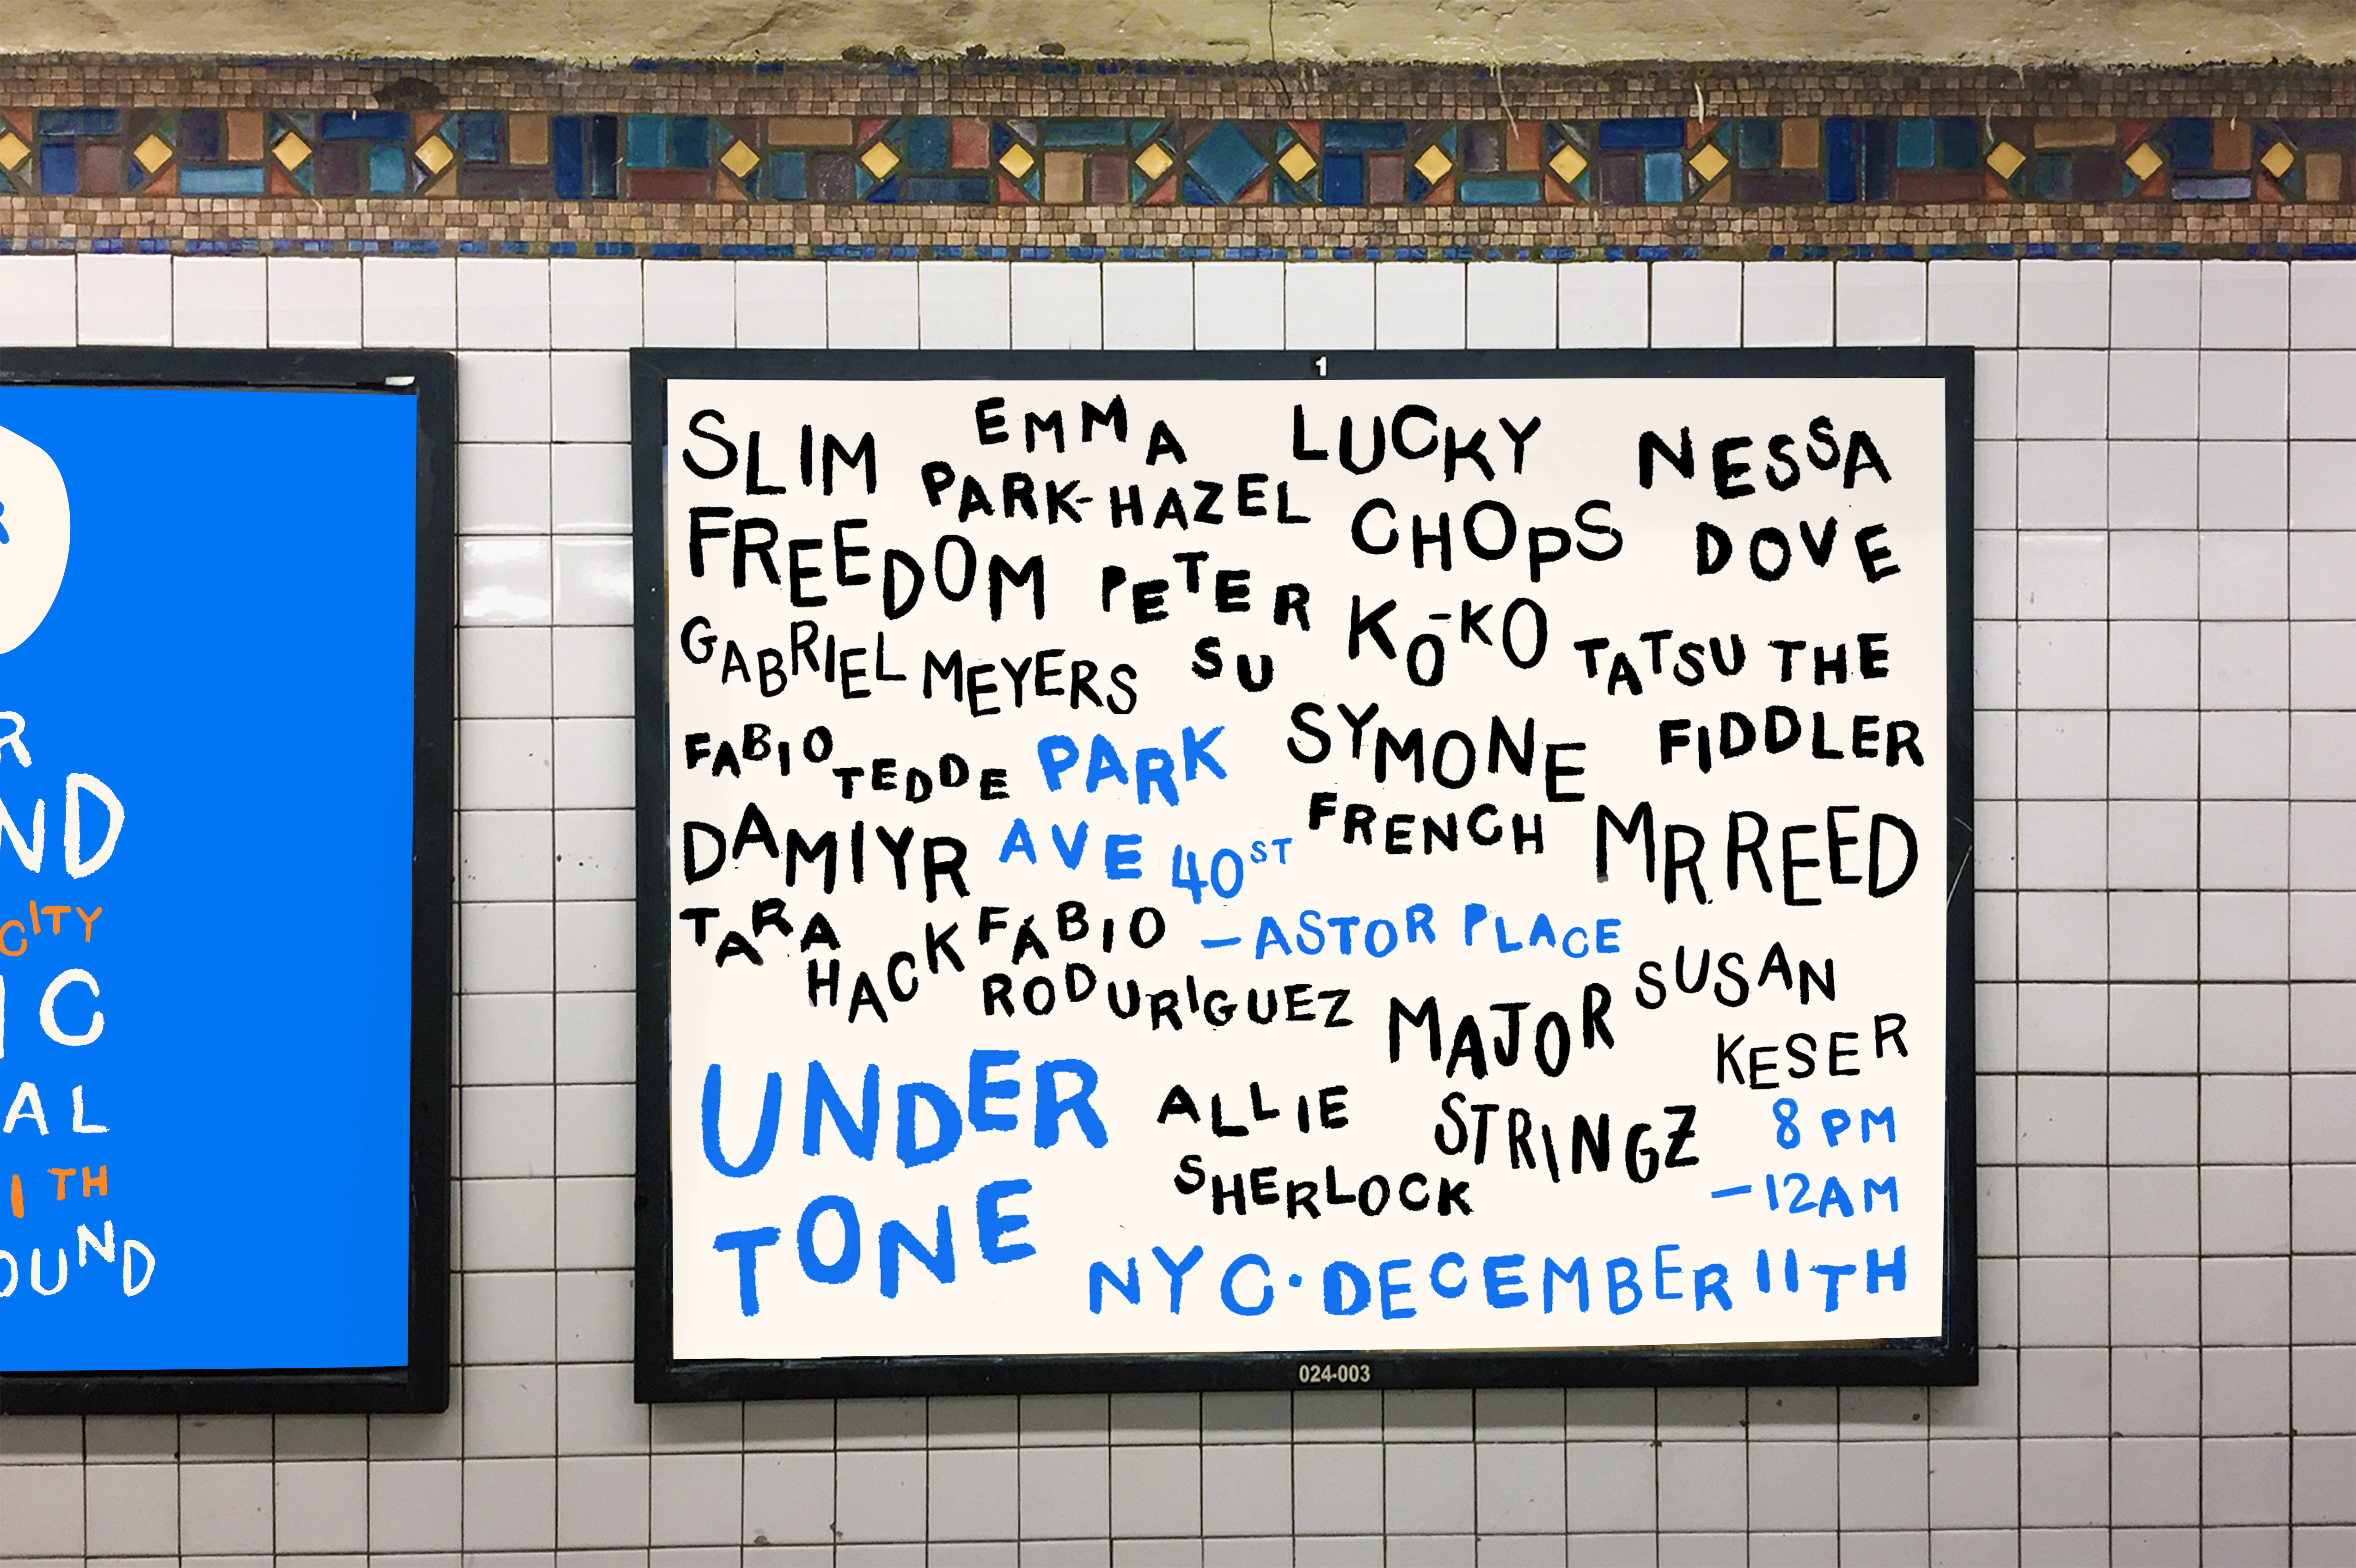 R
R
ND
CITY
IC
AL
ITH
OUND
1
SLIM
FREEDOM
EMMA
PARK-HAZEL
LUCKY
CHOPS
NESSA
DOVE
GABRIEL MEYERS
PETER
SU
KŌ-KO
TATSU THE
FIDDLER
FABIO
TEDDE
PARK
AVE 40ST
-ASTOR PLACE
SYMONE
FRENCH
DAMIYR
MR REED
TARA
HACK
FABIO
RODURIGUEZ
MAJOR
STRINGZ
SUSAN
KESER
UNDER
TONE
ALLIE
SHERLOCK
8 PM
-12AM
NYC·DECEMBER 11TH
024-003